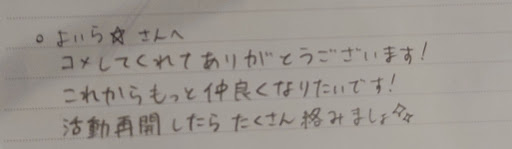 ○ よいら☆さんへ
コメしてくれてありがとうございます!
これからもっと仲良くなりたいです!
活動再開したらたくさん絡みましょ☆☆